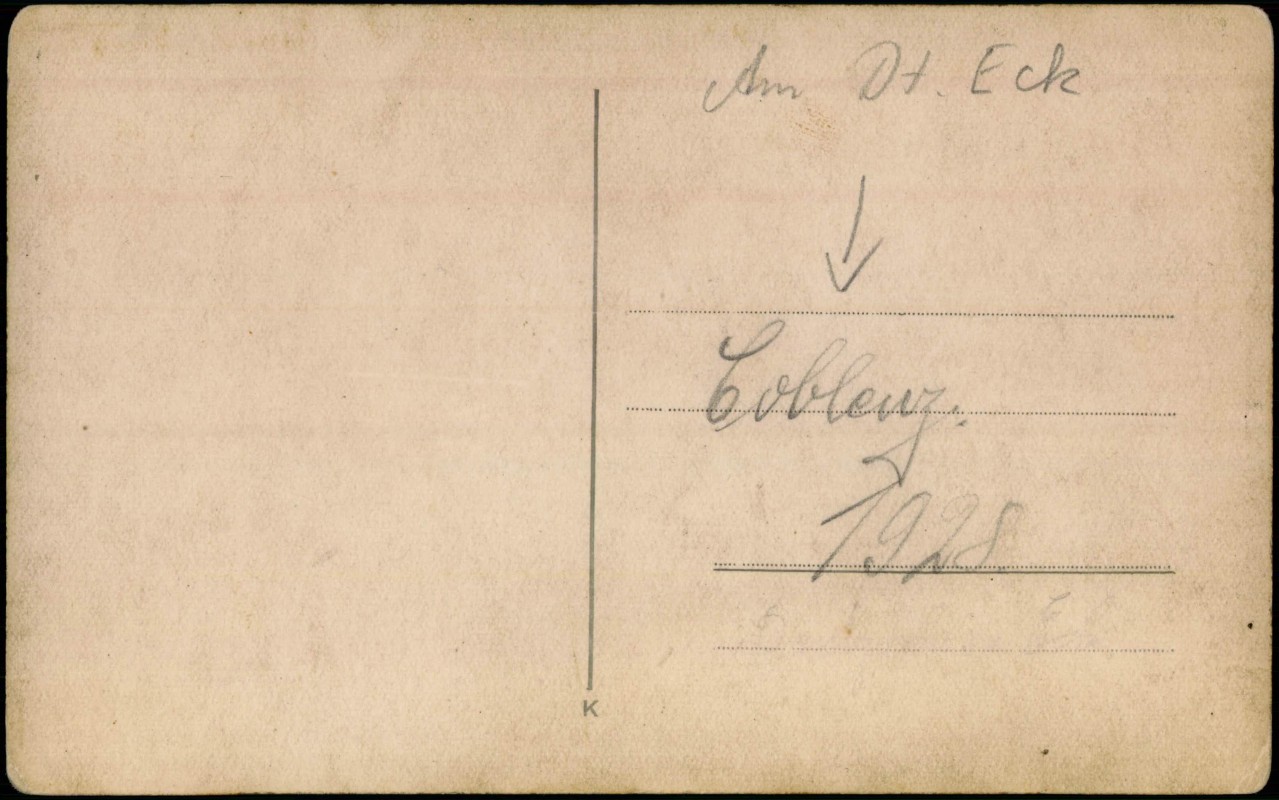 Am Dt. Eck
Coblenz.
1928
K